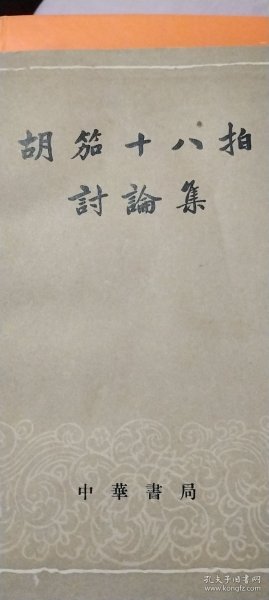 胡笳十八拍
討論集
中華書局
孔夫子旧书网